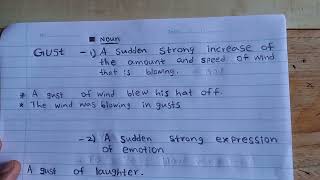 ■ Noun
GUST - 1) A sudden strong increase of
the amount and speed of wind
that is blowing.
* A gust of wind blew his hat off.
* The wind was blowing in gusts
- 2) A sudden strong expression
of emotion
A gust of laughter.